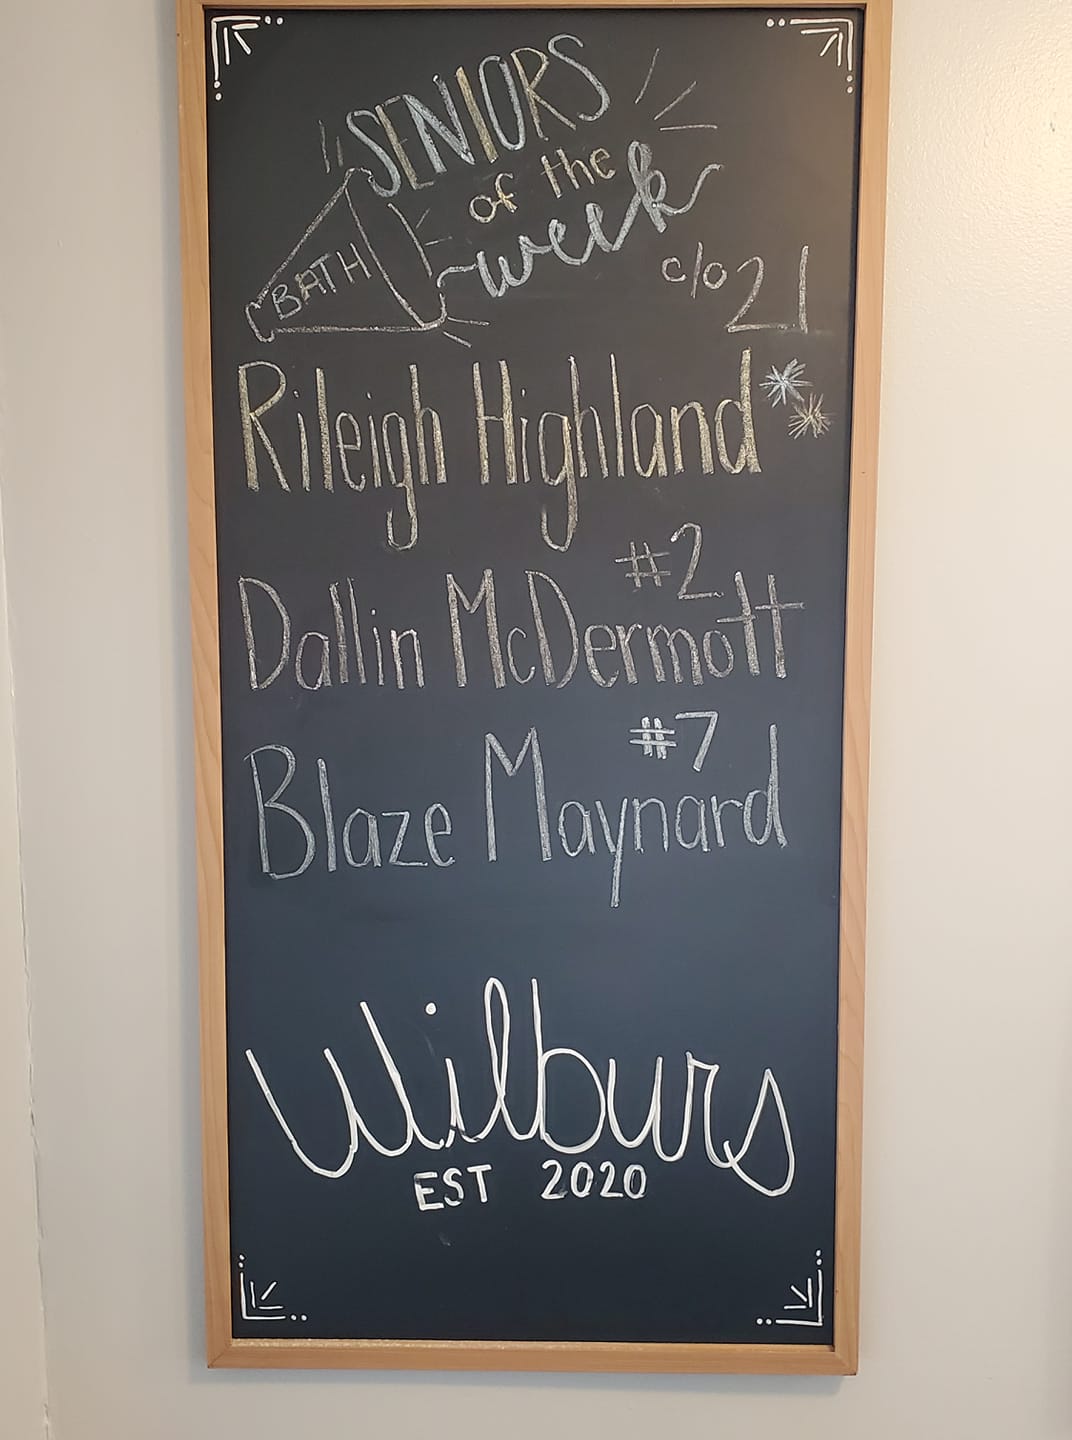 SENIORS
of the
week
BATH
c/o 21
Rileigh Highland
#2
Dallin McDermott
#7
Blaze Maynard
Wilburs
EST 2020